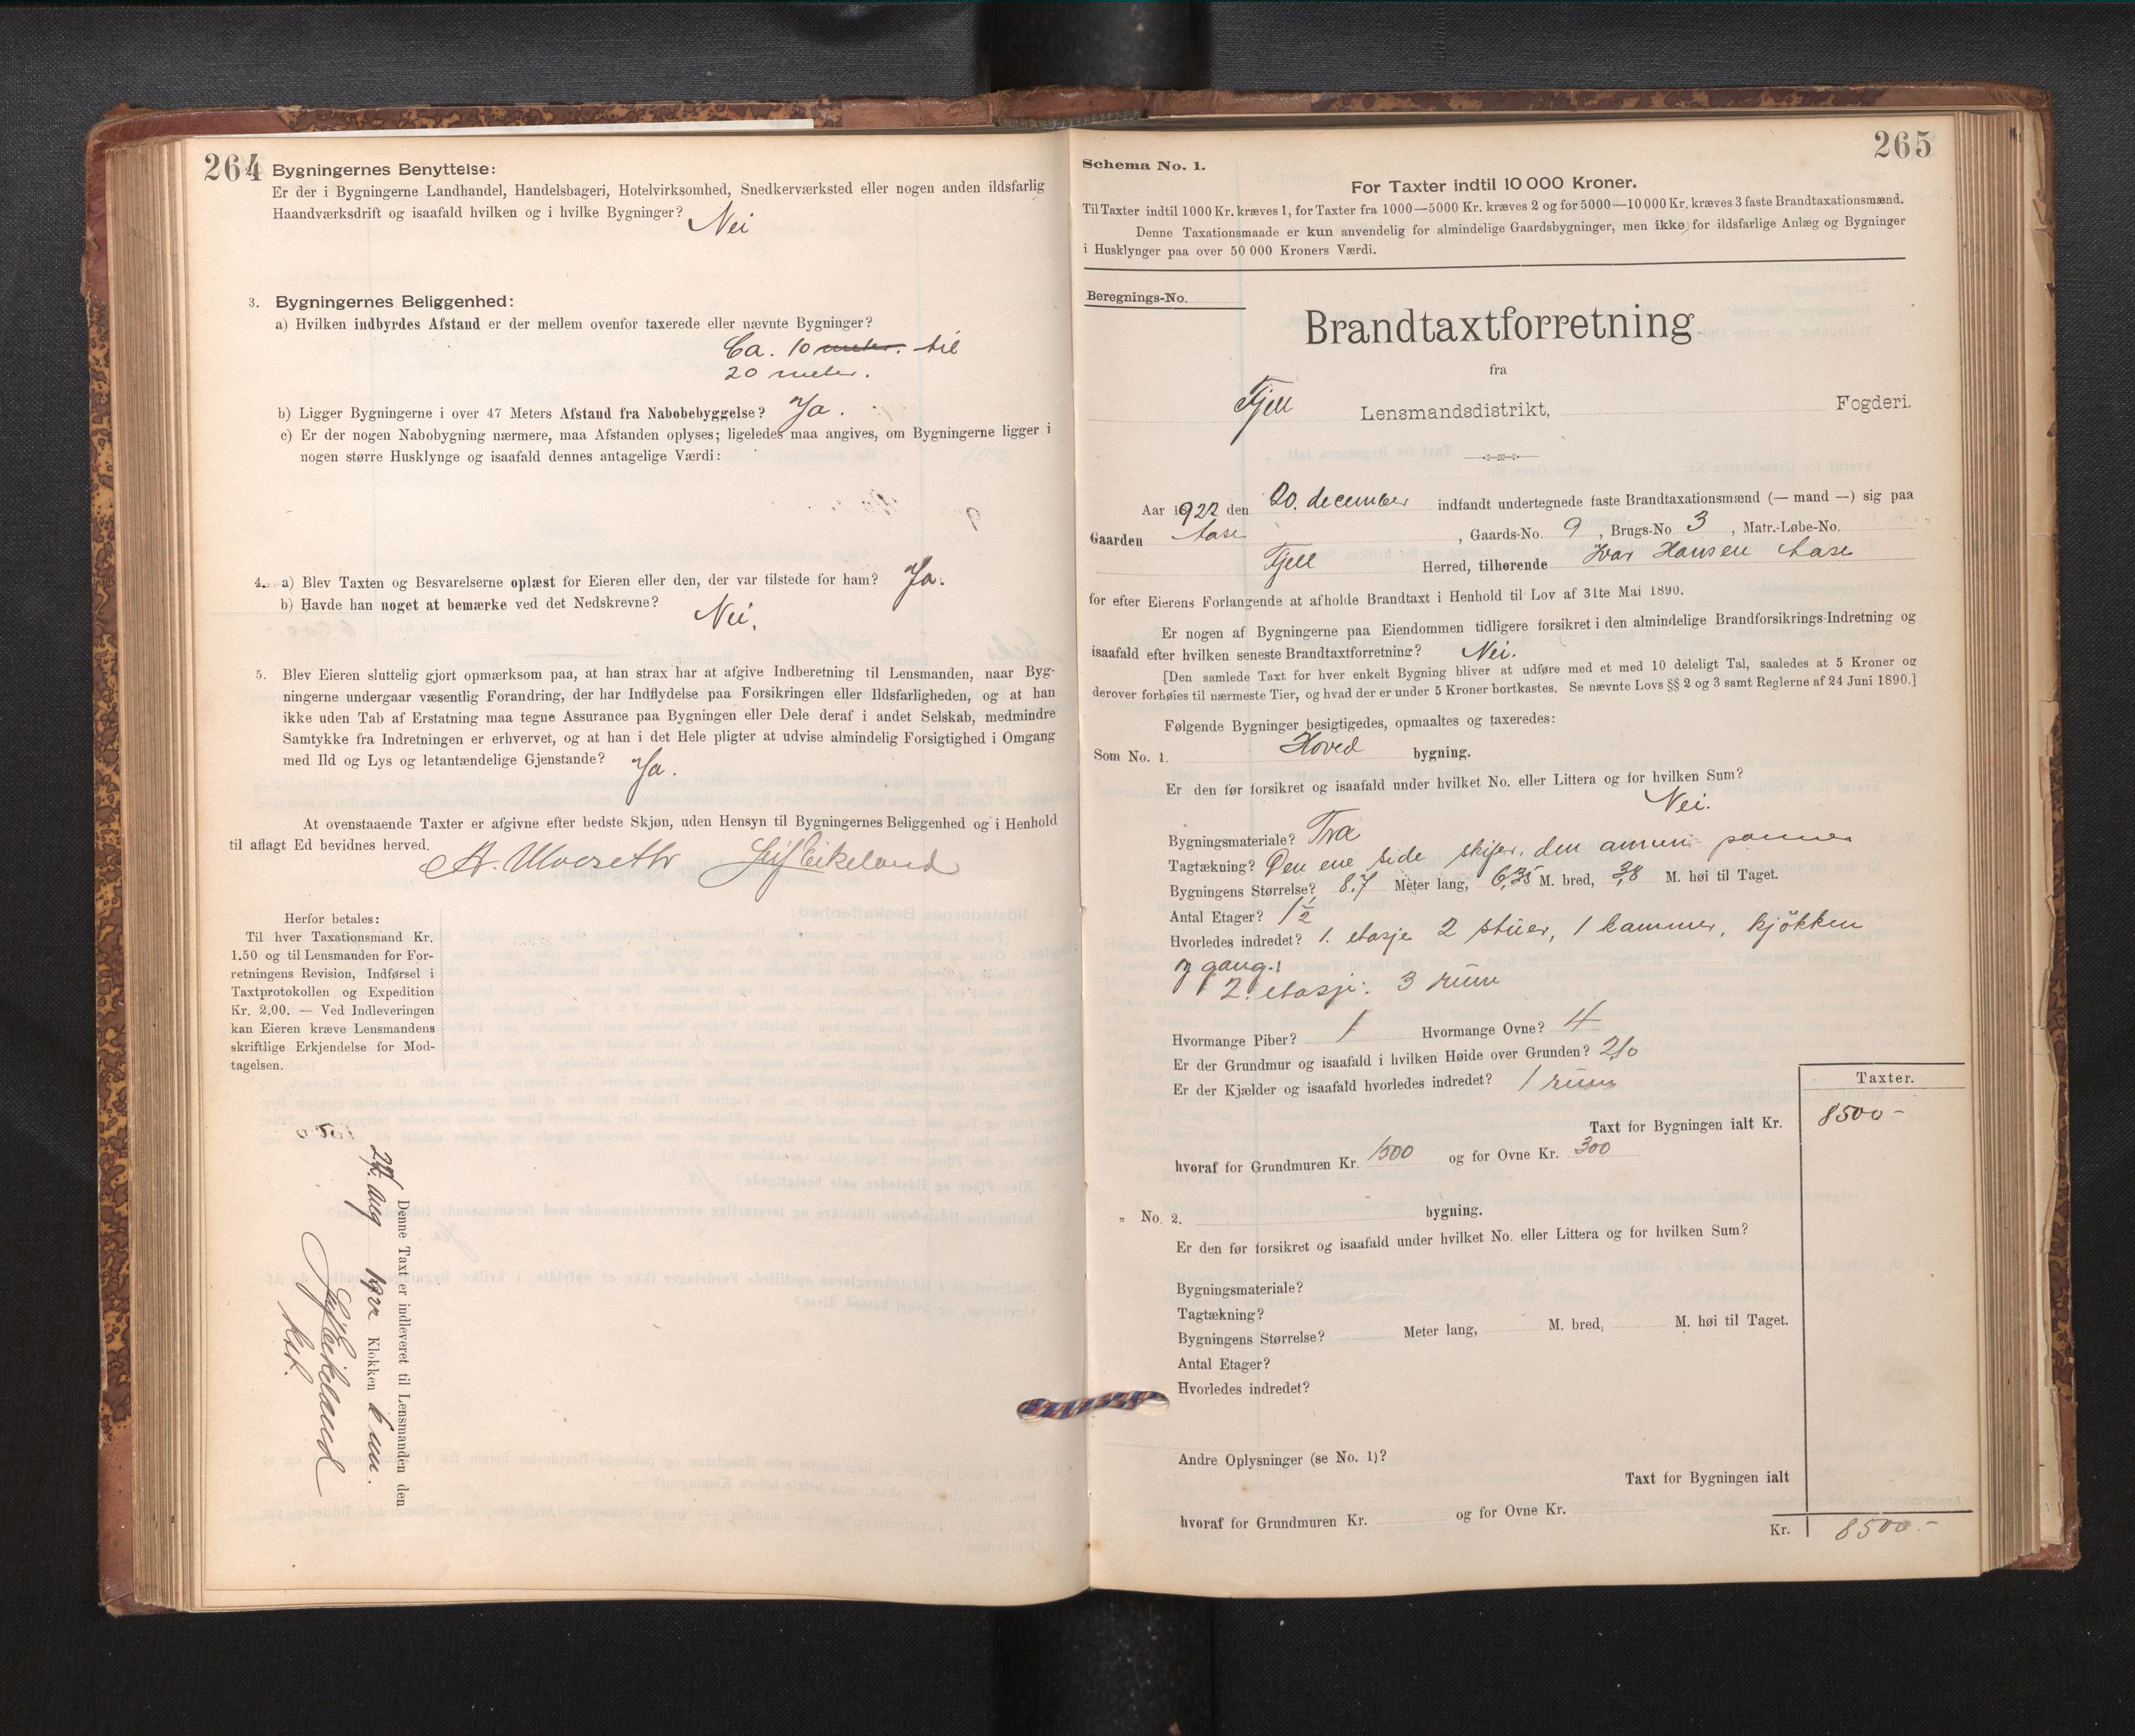 264
Bygningernes Benyttelse:
Er der i Bygningerne Landhandel, Handelsbageri, Hotelvirksomhed, Snedkerværksted eller nogen anden ildsfarlig
Haandværksdrift og isaafald hvilken og i hvilke Bygninger? Nei
3. Bygningernes Beliggenhed:
a) Hvilken indbyrdes Afstand er der mellem ovenfor taxerede eller nævnte Bygninger?
Ca. 10 meter. til
20 meter.
b) Ligger Bygningerne i over 47 Meters Afstand fra Nabobebyggelse? Ja.
c) Er der nogen Nabobygning nærmere, maa Afstanden oplyses; ligeledes maa angives, om Bygningerne ligger i
nogen større Husklynge og isaafald dennes antagelige Værdi:
4. a) Blev Taxten og Besvarelserne oplæst for Eieren eller den, der var tilstede for ham? Ja.
b) Havde han noget at bemærke ved det Nedskrevne? Nei.
5. Blev Eieren sluttelig gjort opmærksom paa, at han strax har at afgive Indberetning til Lensmanden, naar Byg-
ningerne undergaar væsentlig Forandring, der har Indflydelse paa Forsikringen eller Ildsfarligheden, og at han
ikke uden Tab af Erstatning maa tegne Assurance paa Bygningen eller Dele deraf i andet Selskab, medmindre
Samtykke fra Indretningen er erhvervet, og at han i det Hele pligter at udvise almindelig Forsigtighed i Omgang
med Ild og Lys og letantændelige Gjenstande? Ja.
At ovenstaaende Taxter er afgivne efter bedste Skjøn, uden Hensyn til Bygningernes Beliggenhed og i Henhold
til aflagt Ed bevidnes herved.
Leif Eikeland
Herfor betales:
Til hver Taxationsmand Kr.
1.50 og til Lensmanden for For-
retningens Revision, Indførsel i
Taxtprotokollen og Expedition
Kr. 2.00. — Ved Indleveringen
kan Eieren kræve Lensmandens
skriftlige Erkjendelse for Mod-
tagelsen.
Denne Taxt er indleveret til Lensmanden den
1922 Klokken
Leif Eikeland
265
Schema No. 1.
For Taxter indtil 10 000 Kroner.
Til Taxter indtil 1000 Kr. kræves 1, for Taxter fra 1000—5000 Kr. kræves 2 og for 5000—10 000 Kr. kræves 3 faste Brandtaxationsmænd.
Denne Taxationsmaade er kun anvendelig for almindelige Gaardsbygninger, men ikke for ildsfarlige Anlæg og Bygninger
i Husklynger paa over 50 000 Kroners Værdi.
Beregnings-No.
Brandtaxtforretning
fra
Fjell Lensmandsdistrikt, Fogderi.
Aar 1922 den 20. december indfandt undertegnede faste Brandtaxationsmænd (— mand —) sig paa
Gaarden Aase, Gaards-No. 9, Brugs-No. 3, Matr.-Løbe-No.
Fjell Herred, tilhørende Ivar Hansen Aase
for efter Eierens Forlangende at afholde Brandtaxt i Henhold til Lov af 31te Mai 1890.
Er nogen af Bygningerne paa Eiendommen tidligere forsikret i den almindelige Brandforsikrings-Indretning og
isaafald efter hvilken seneste Brandtaxtforretning? Nei.
[Den samlede Taxt for hver enkelt Bygning bliver at udføre med et med 10 deleligt Tal, saaledes at 5 Kroner og
derover forhøies til nærmeste Tier, og hvad der er under 5 Kroner bortkastes. Se nævnte Lovs §§ 2 og 3 samt Reglerne af 24 Juni 1890.]
Følgende Bygninger besigtigedes, opmaaltes og taxeredes:
Som No. 1. Hoved bygning.
Er den før forsikret og isaafald under hvilket No. eller Littera og for hvilken Sum?
Nei.
Bygningsmateriale? Træ
Tagtækning? Den ene side skifer, den annen panner
Bygningens Størrelse? 8.7 Meter lang, 6,35 M. bred, 3,8 M. høi til Taget.
Antal Etager? 1 1/2
Hvorledes indredet? 1. etasje 2 stuer, 1 kammer, kjøkken
og gang.
2. etasje: 3 rum
Hvormange Piber? 1 Hvormange Ovne? 4
Er der Grundmur og isaafald i hvilken Høide over Grunden? 2,0
Er der Kjælder og isaafald hvorledes indredet? 1 rum
Taxter.
Taxt for Bygningen ialt Kr. 8500-
hvoraf for Grundmuren Kr. 1500 og for Ovne Kr. 300
„ No. 2. bygning.
Er den før forsikret og isaafald under hvilket No. eller Littera og for hvilken Sum?
Bygningsmateriale?
Tagtækning?
Bygningens Størrelse? Meter lang, M. bred, M. høi til Taget.
Antal Etager?
Hvorledes indredet?
Andre Oplysninger (se No. 1)?
Taxt for Bygningen ialt
hvoraf for Grundmuren Kr. og for Ovne Kr.
Kr. 8500.-